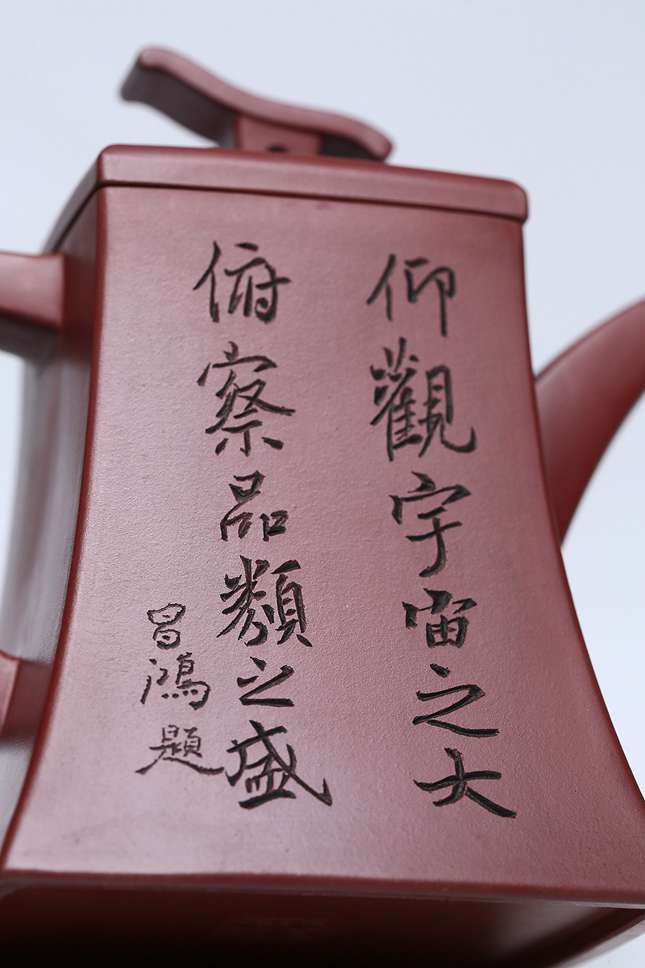 仰觀宇宙之大
俯察品類之盛
昌鴻題